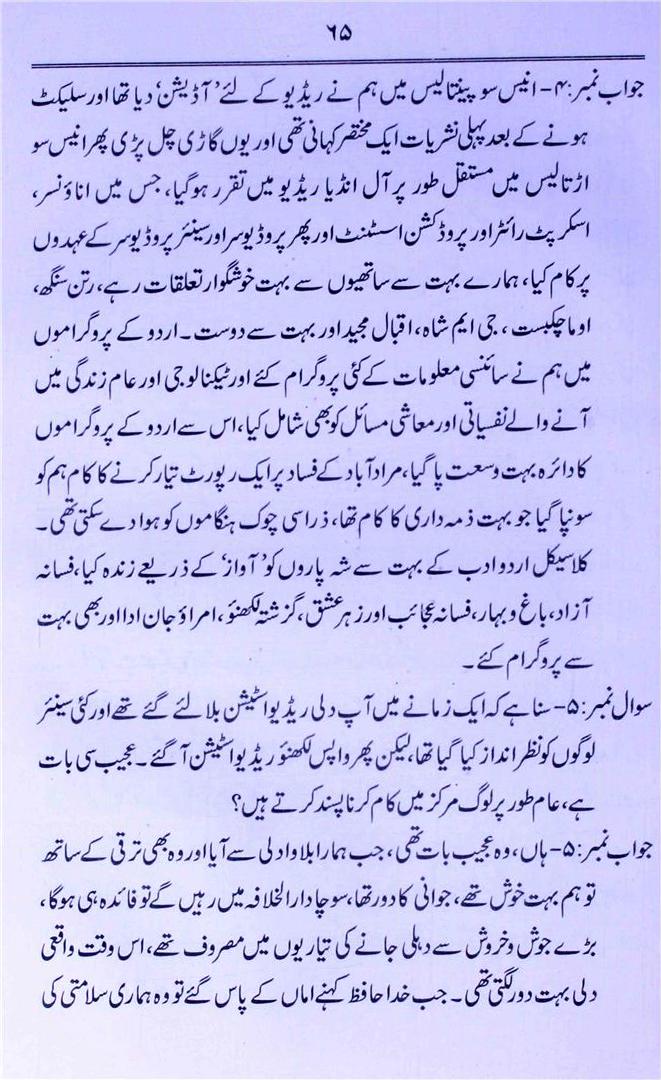 ۶۵
جواب نمبر:۴- انیس سو پینتالیس میں ہم نے ریڈیو کے لئے ’آڈیشن‘ دیا تھا اور سلیکٹ
ہونے کے بعد پہلی نشریات ایک مختصر کہانی تھی اور یوں گاڑی چل پڑی پھر انیس سو
اڑتالیس میں مستقل طور پر آل انڈیا ریڈیو میں تقرر ہوگیا، جس میں اناؤنسر،
اسکرپٹ رائٹر اور پروڈکشن اسسٹنٹ اور پھر پروڈیوسر اور سینئر پروڈیوسر کے عہدوں
پر کام کیا، ہمارے بہت سے ساتھیوں سے بہت خوشگوار تعلقات رہے، رتن سنگھ،
اوما چکبست، جی ایم شاہ، اقبال مجید اور بہت سے دوست۔ اردو کے پروگراموں
میں ہم نے سائنسی معلومات کے کئی پروگرام کئے اور ٹیکنالوجی اور عام زندگی میں
آنے والے نفسیاتی اور معاشی مسائل کو بھی شامل کیا، اس سے اردو کے پروگراموں
کا دائرہ بہت وسعت پا گیا، مرادآباد کے فساد پر ایک رپورٹ تیار کرنے کا کام ہم کو
سونپا گیا جو بہت ذمہ داری کا کام تھا، ذرا سی چوک ہنگاموں کو ہوا دے سکتی تھی۔
کلاسیکل اردو ادب کے بہت سے شہ پاروں کو ’آواز‘ کے ذریعے زندہ کیا، فسانہ
آزاد، باغ و بہار، فسانہ عجائب اور زہر عشق، گزشتہ لکھنؤ، امراؤ جان ادا اور بھی بہت
سے پروگرام کئے۔
سوال نمبر:۵- سنا ہے کہ ایک زمانے میں آپ دلی ریڈیو اسٹیشن بلا لئے گئے تھے اور کئی سینئر
لوگوں کو نظر انداز کیا گیا تھا، لیکن پھر واپس لکھنؤ ریڈیو اسٹیشن آ گئے۔ عجیب سی بات
ہے، عام طور پر لوگ مرکز میں کام کرنا پسند کرتے ہیں؟
جواب نمبر:۵- ہاں، وہ عجیب بات تھی، جب ہمارا بلاوا دلی سے آیا اور وہ بھی ترقی کے ساتھ
تو ہم بہت خوش تھے، جوانی کا دور تھا، سوچا دارالخلافہ میں رہیں گے تو فائدہ ہی ہوگا،
بڑے جوش و خروش سے دہلی جانے کی تیاریوں میں مصروف تھے، اس وقت واقعی
دلی بہت دور لگتی تھی۔ جب خدا حافظ کہنے اماں کے پاس گئے تو وہ ہماری سلامتی کی